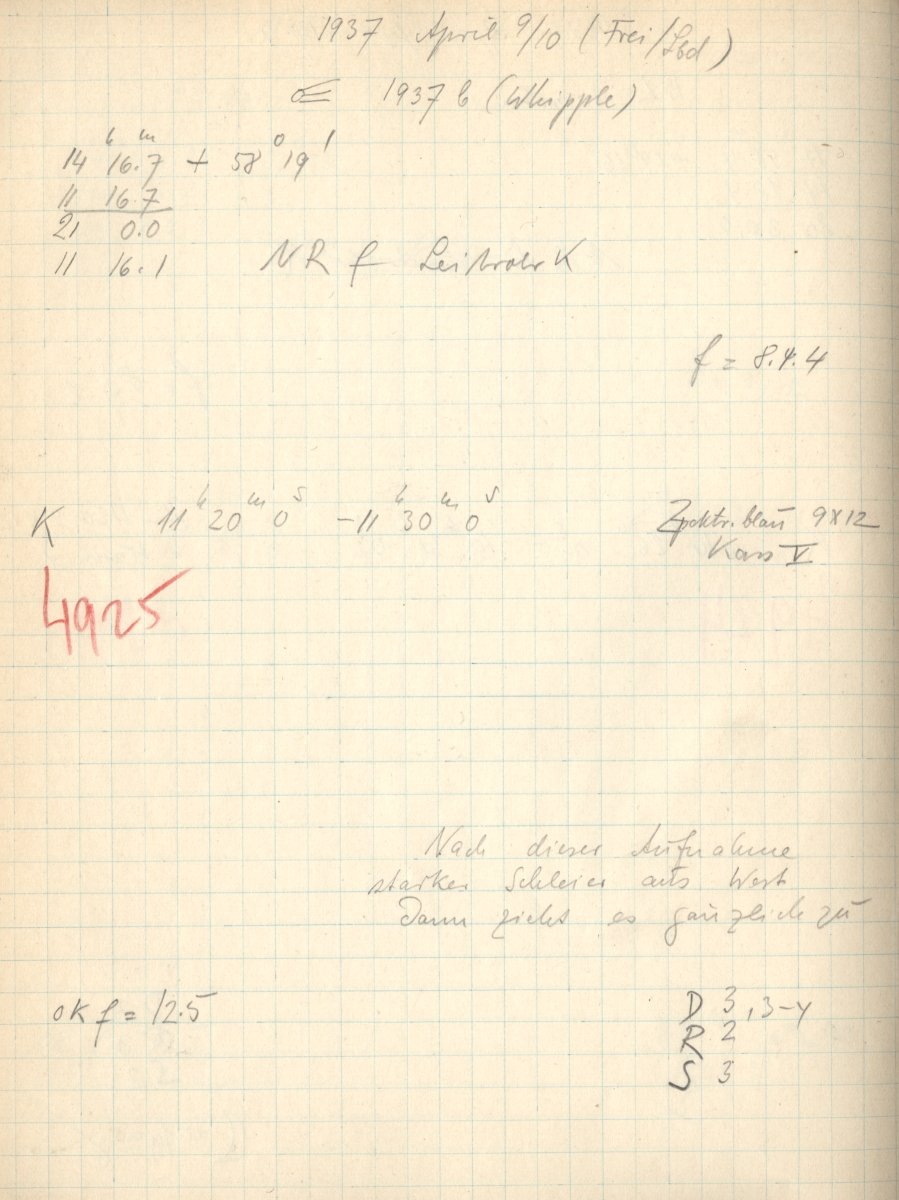 1937 April 9/10 (Frei/Sbd)
1937 b (Whipple)
14h 16.7m + 58° 19'
11 16.7
21 0.0
11 16.1 NR f Leitrohr K
f = 8.4.4
K 11h 20m 0s - 11h 30m 0s blau 9x12
Kass V
4925
Nach dieser Aufnahme
starker Schleier aus West
Dann zieht es gänzlich zu
OK f = 12.5
D 3,3-4
R 2
S 3